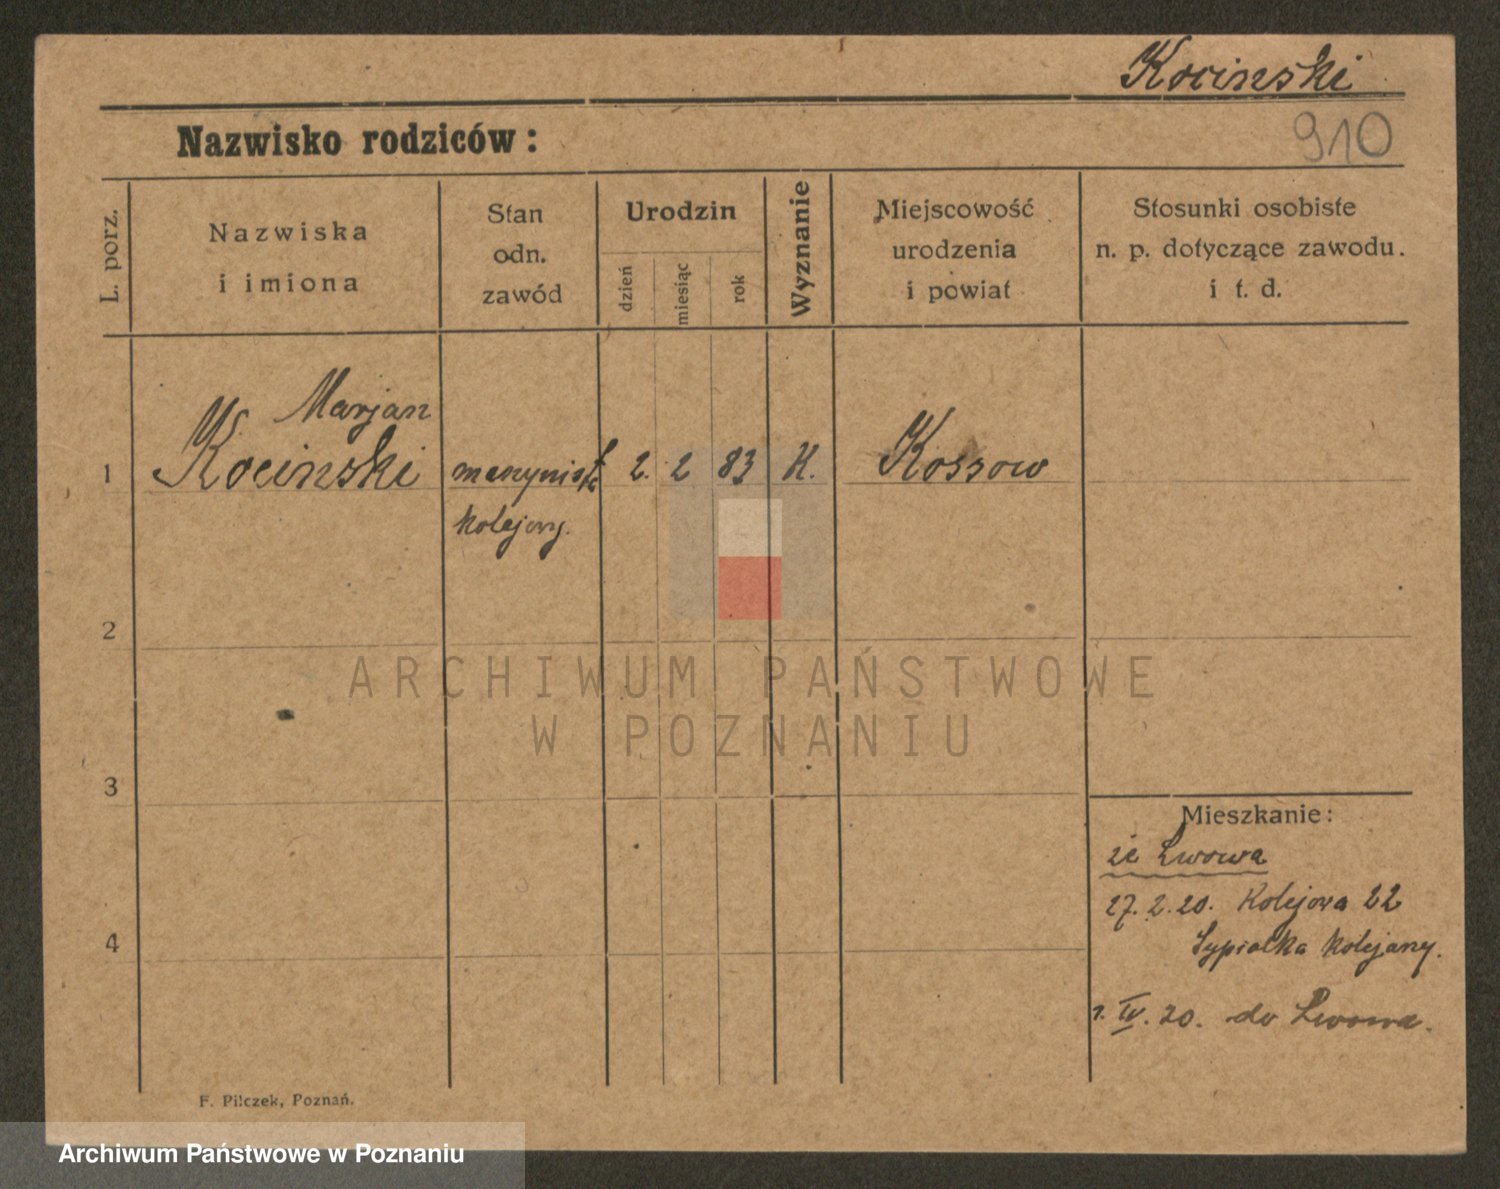 Kocinski
910
Nazwisko rodziców:
L. porz.
Nazwiska
i imiona
Stan
odn.
zawód
Urodzin
dzień
miesiąc
rok
Wyznanie
Miejscowość
urodzenia
i powiat
Stosunki osobiste
n. p. dotyczące zawodu.
i t. d.
Marjan
1 Kocinski maszynista 2. 2 83 K. Kossow
kolejowy.
2
ARCHIWUM PAŃSTWOWE
W POZNANIU
3
Mieszkanie:
ze Lwowa
27.2.20. Kolejowa 22
Sypialka kolejowy.
4
1. IV. 20. do Lwowa.
F. Pilczek, Poznań.
Archiwum Państwowe w Poznaniu